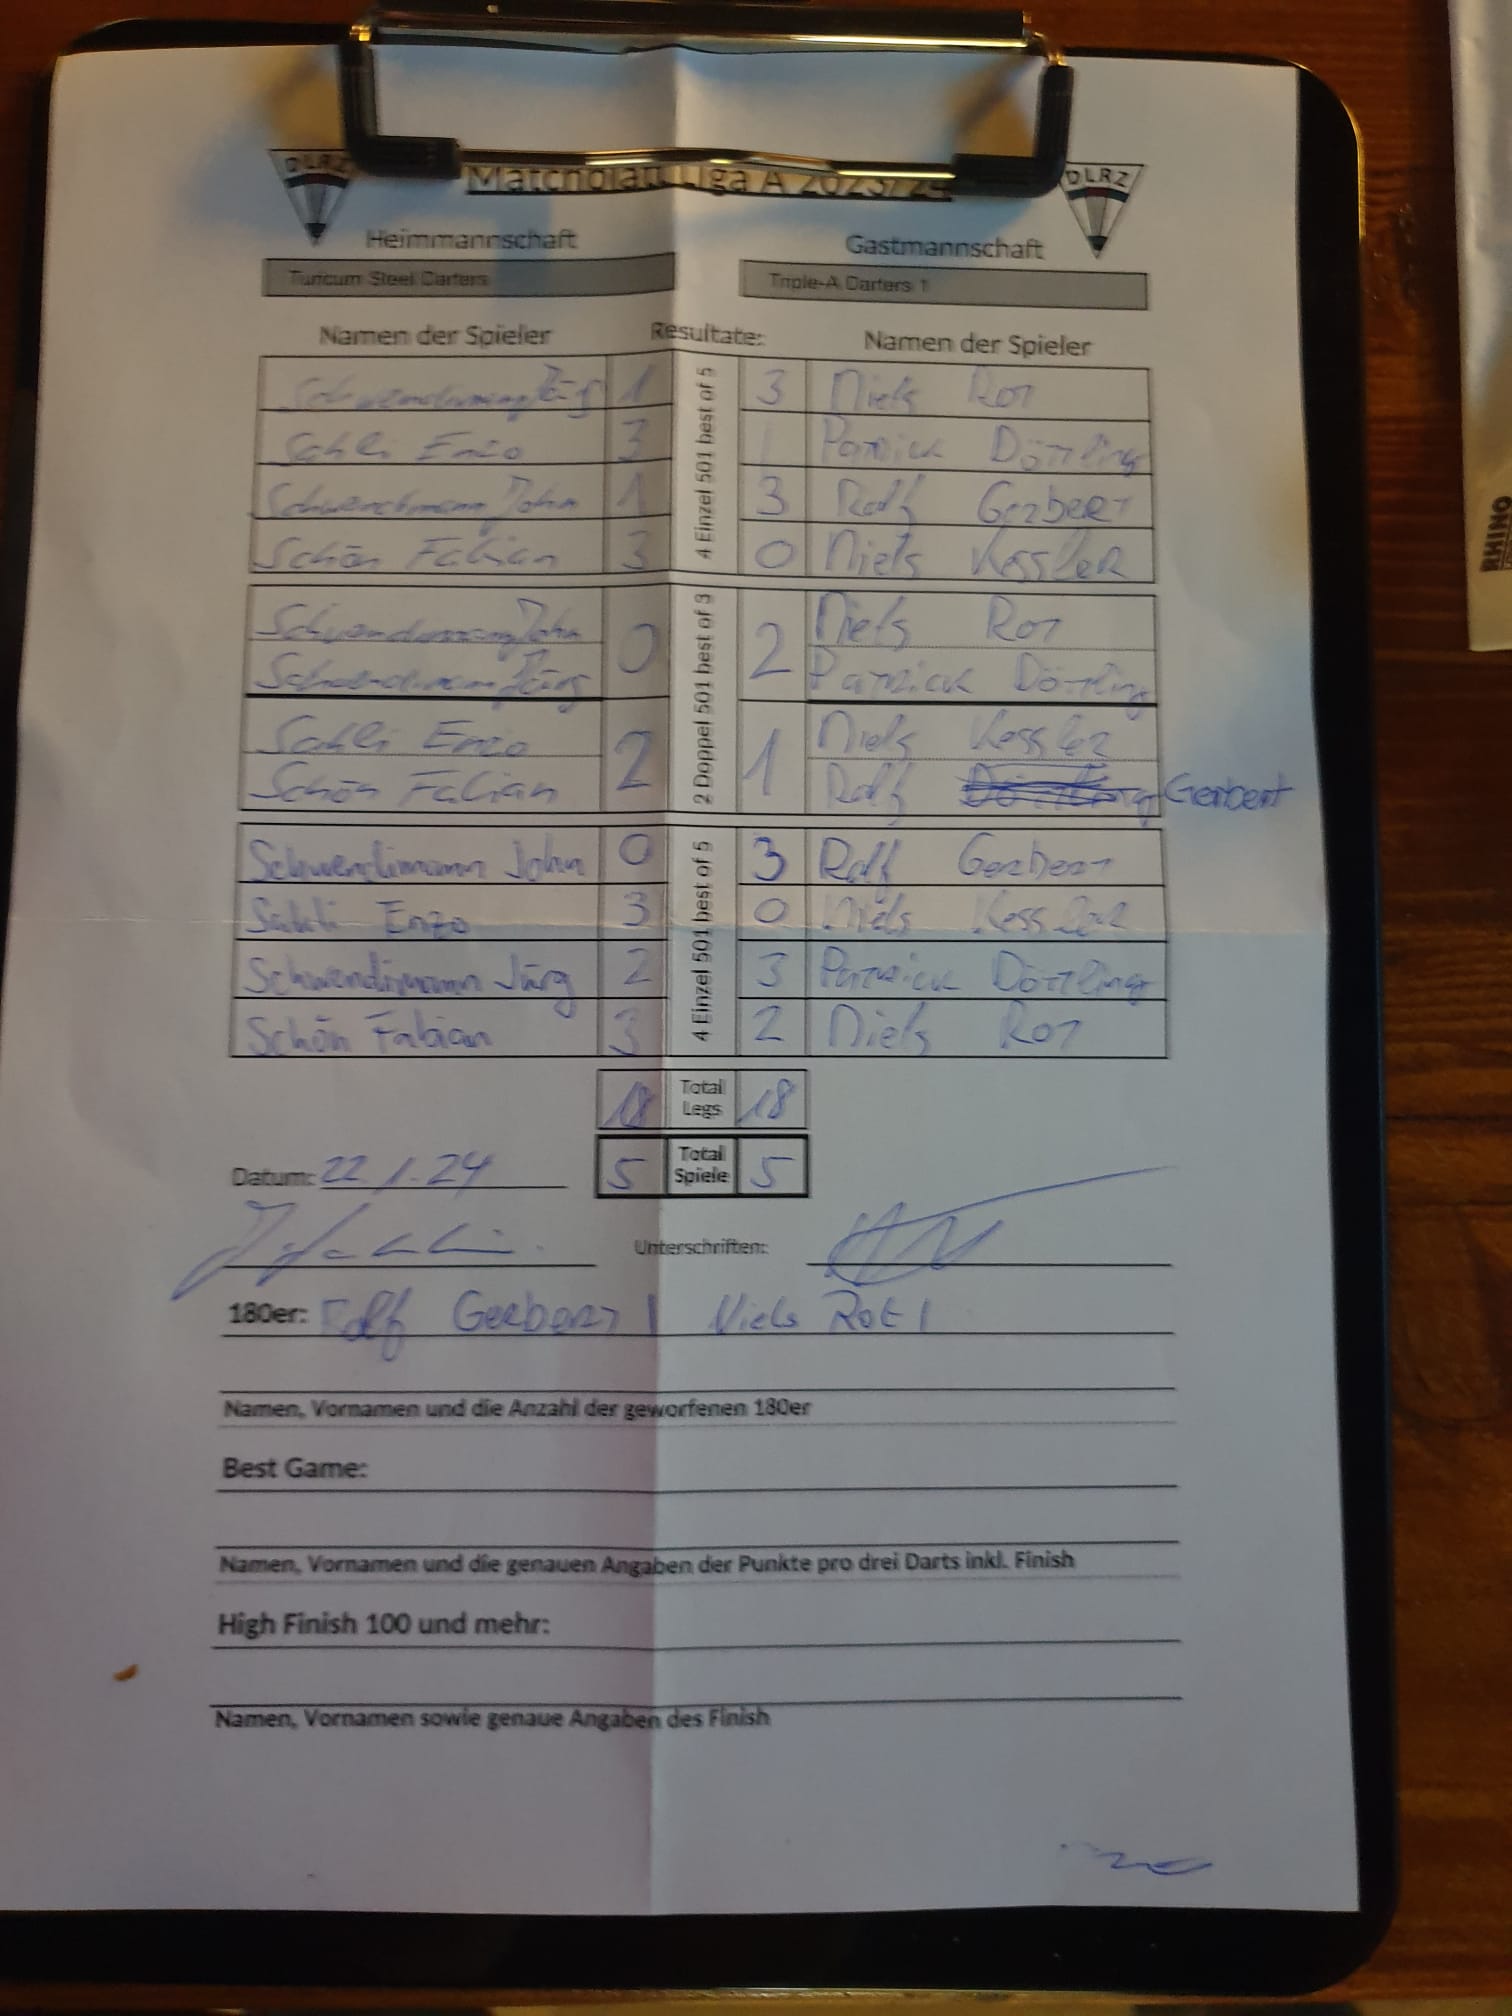 DLRZ Matchblatt Liga A 2023/24 DLRZ
Heimmannschaft Gastmannschaft
Turicum Steel Darters Triple-A Darters 1
Namen der Spieler Resultate: Namen der Spieler
4 Einzel 501 best of 5
Schwendimann Jürg 1 3 Niels Rot
Sahli Enzo 3 1 Patrick Döttling
Schwendimann John 1 3 Ralf Gerbert
Schön Fabian 3 0 Niels Kessler
2 Doppel 501 best of 3
Schwendimann John 0 2 Niels Rot
Schwendimann Jürg Patrick Döttling
Sahli Enzo 2 1 Niels Kessler
Schön Fabian Ralf Gerbert
4 Einzel 501 best of 5
Schwendimann John 0 3 Ralf Gerbert
Sahli Enzo 3 0 Niels Kessler
Schwendimann Jürg 2 3 Patrick Döttling
Schön Fabian 3 2 Niels Rot
18 Total Legs 18
5 Total Spiele 5
Datum: 22.1.24
Unterschriften:
180er: Ralf Gerbert 1 Niels Rot 1
Namen, Vornamen und die Anzahl der geworfenen 180er
Best Game:
Namen, Vornamen und die genauen Angaben der Punkte pro drei Darts inkl. Finish
High Finish 100 und mehr:
Namen, Vornamen sowie genaue Angaben des Finish
RHINO